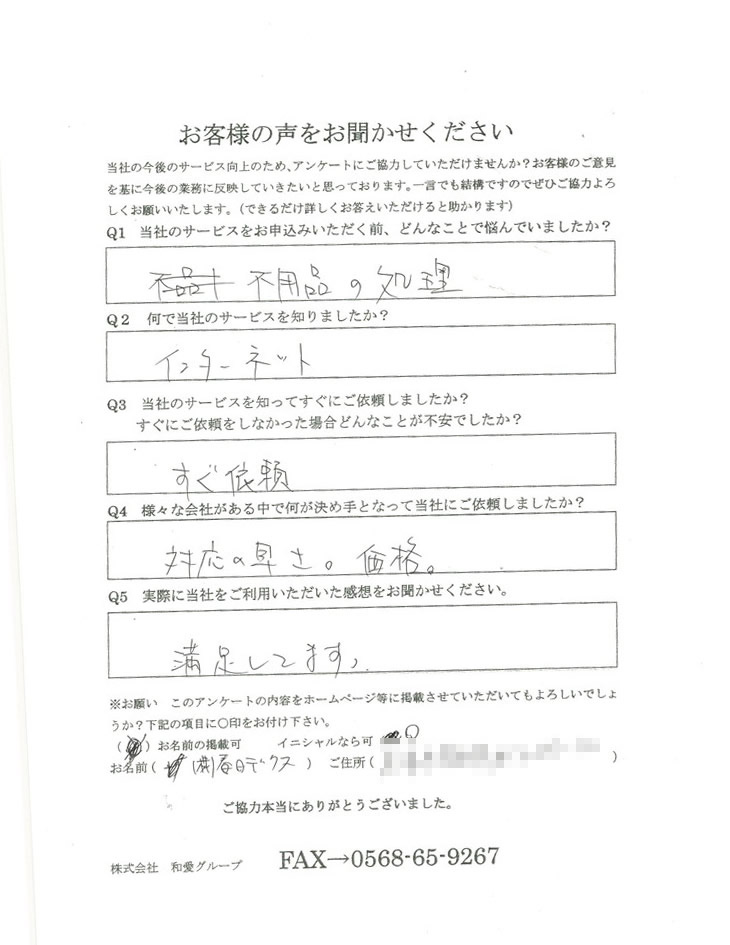 お客様の声をお聞かせください
当社の今後のサービス向上のため、アンケートにご協力していただけませんか？お客様のご意見
を基に今後の業務に反映していきたいと思っております。一言でも結構ですのでぜひご協力よろ
しくお願いいたします。（できるだけ詳しくお答えいただけると助かります）
Q1 当社のサービスをお申込みいただく前、どんなことで悩んでいましたか？
不用品の処理
Q2 何で当社のサービスを知りましたか？
インターネット
Q3 当社のサービスを知ってすぐにご依頼しましたか？
すぐにご依頼をしなかった場合どんなことが不安でしたか？
すぐ依頼
Q4 様々な会社がある中で何が決め手となって当社にご依頼しましたか？
対応の早さ。価格。
Q5 実際に当社をご利用いただいた感想をお聞かせください。
満足してます。
※お願い このアンケートの内容をホームページ等に掲載させていただいてもよろしいでしょ
うか？下記の項目に○印をお付け下さい。
（ ）お名前の掲載可 イニシャルなら可 ○
お名前（ ㈱春日デックス ） ご住所（ ）
ご協力本当にありがとうございました。
株式会社 和愛グループ FAX→0568-65-9267